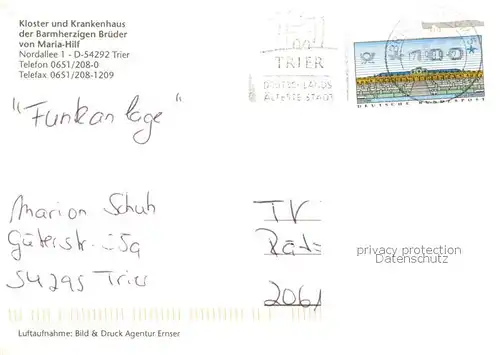 Kloster und Krankenhaus
der Barmherzigen Brüder
von Maria-Hilf
Nordallee 1 - D-54292 Trier
Telefon 0651/208-0
Telefax 0651/208-1209
TRIER
DEUTSCHLANDS
ÄLTESTE STADT
100
DEUTSCHE BUNDESPOST
"Funkanlage"
Marion Schuh
Güterstr. 55a
54295 Trier
TV
2061
privacy protection
Datenschutz
Luftaufnahme: Bild & Druck Agentur Ernser